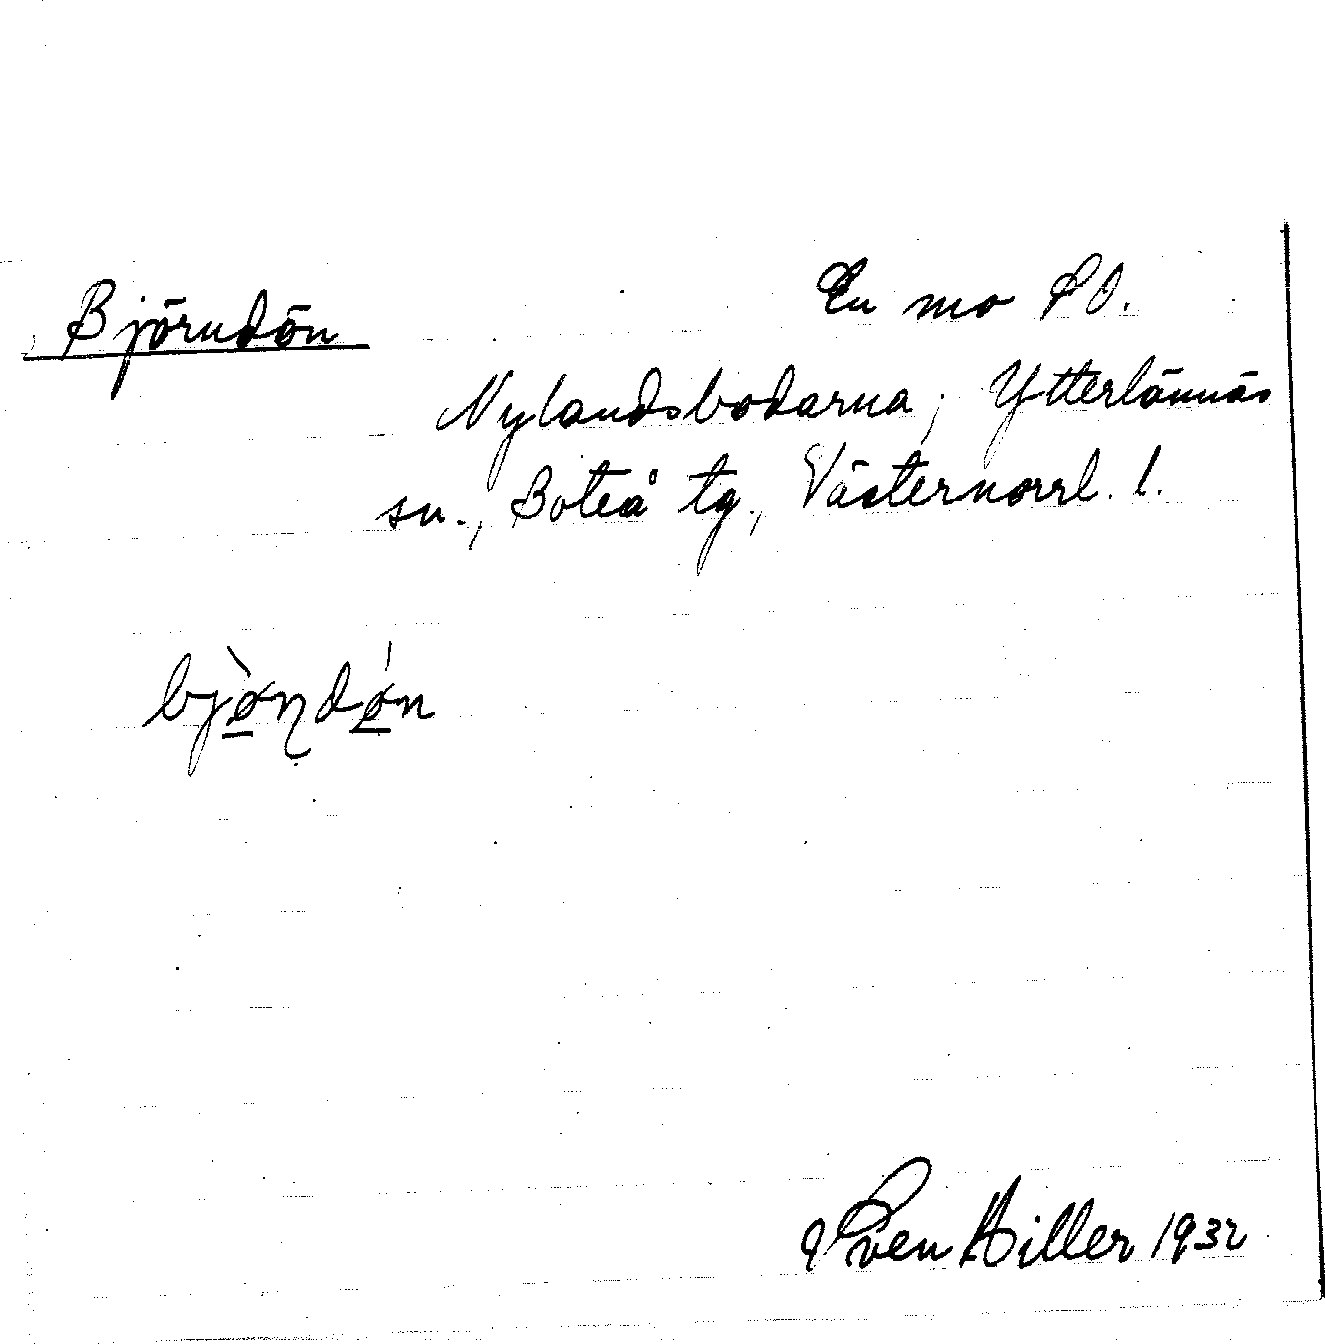 Björndön
En mo SO.
Nylandsbodarna, Ytterlännäs
sn., Boteå tg., Västernorrl. l.
bjø̀ɳdǿn
Sven Hiller 1932